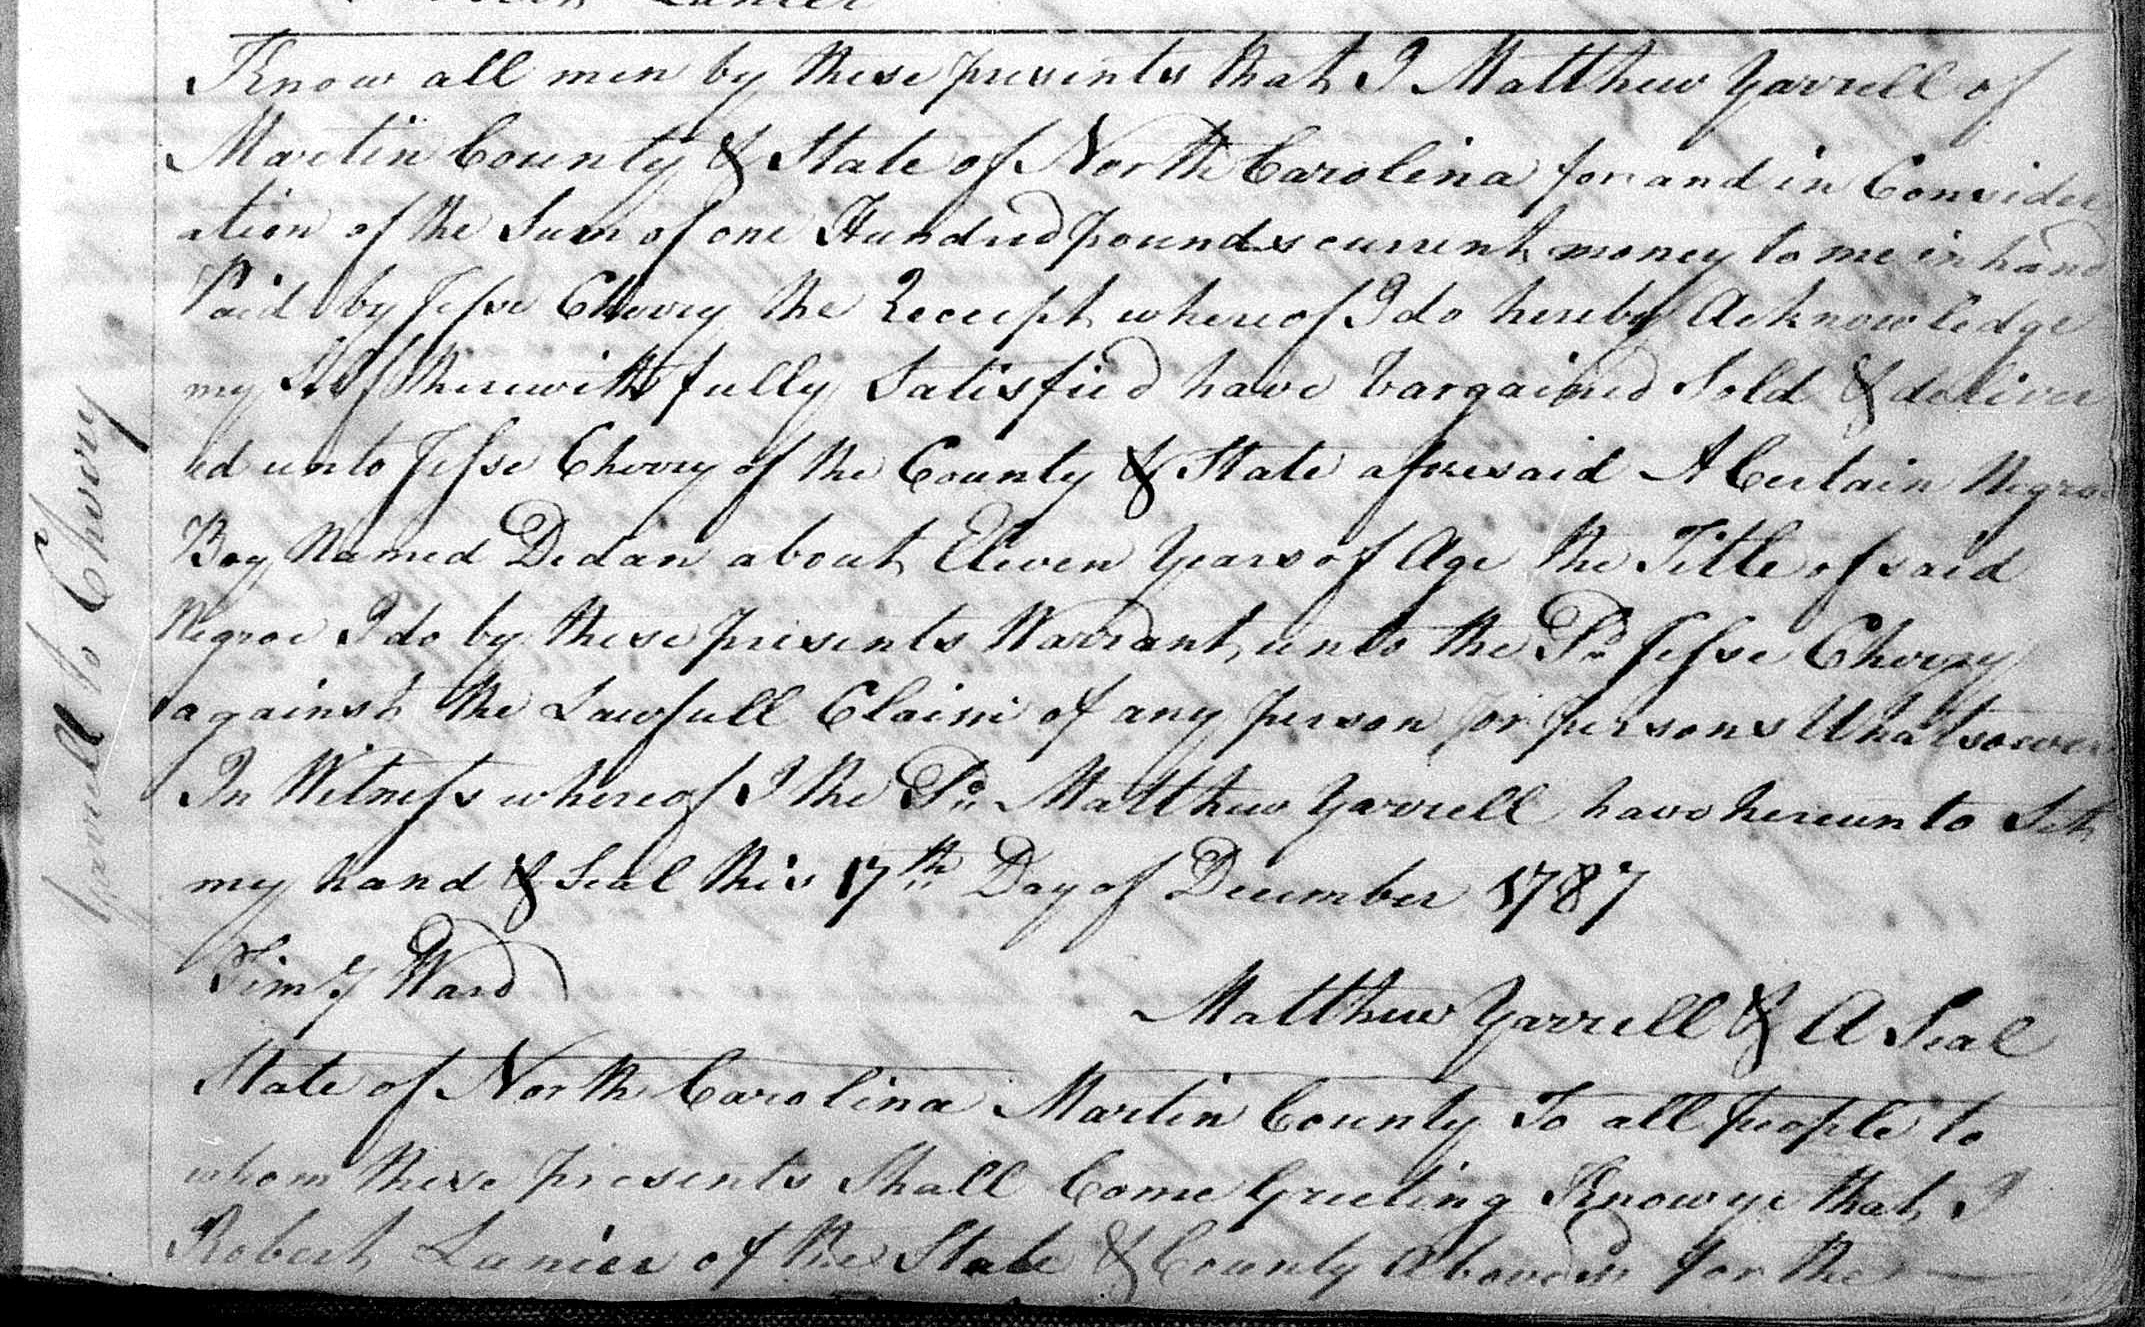 Lanier
Know all men by these presents that I Matthew Yarrell of
Martin County & State of North Carolina for and in Consider
ation of the Sum of one Hundred pounds current money to me in hand
Paid by Jesse Cherry the Receipt whereof I do hereby Acknowledge
my Self therewith fully Satisfied have bargained Sold & deliver
ed unto Jesse Cherry of the County & State aforesaid A Certain Negroe
Boy Named Dedan about Eleven Years of Age the Title of said
Negroe I do by these presents Warrant unto the Sd. Jesse Cherry
against the Lawfull Claim of any person or persons Whatsoever
In Witness whereof I the Sd. Matthew Yarrell have hereunto Set
my hand & Seal this 17th Day of December 1787
Timy Ward
Matthew Yarrell & A Seal
State of North Carolina Martin County To all People to
whom these presents Shall Come Greeting Know ye that I
Robert Lanier of the State & County Above for the
Yarrell to Cherry